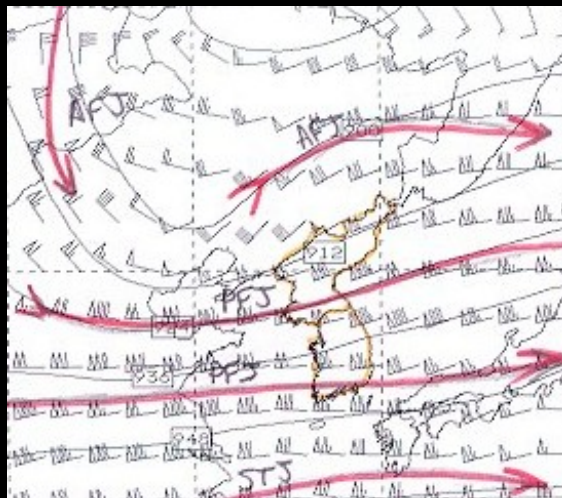 AFJ
AFJ
900
912
PFJ
924
936
PFJ
948
STJ